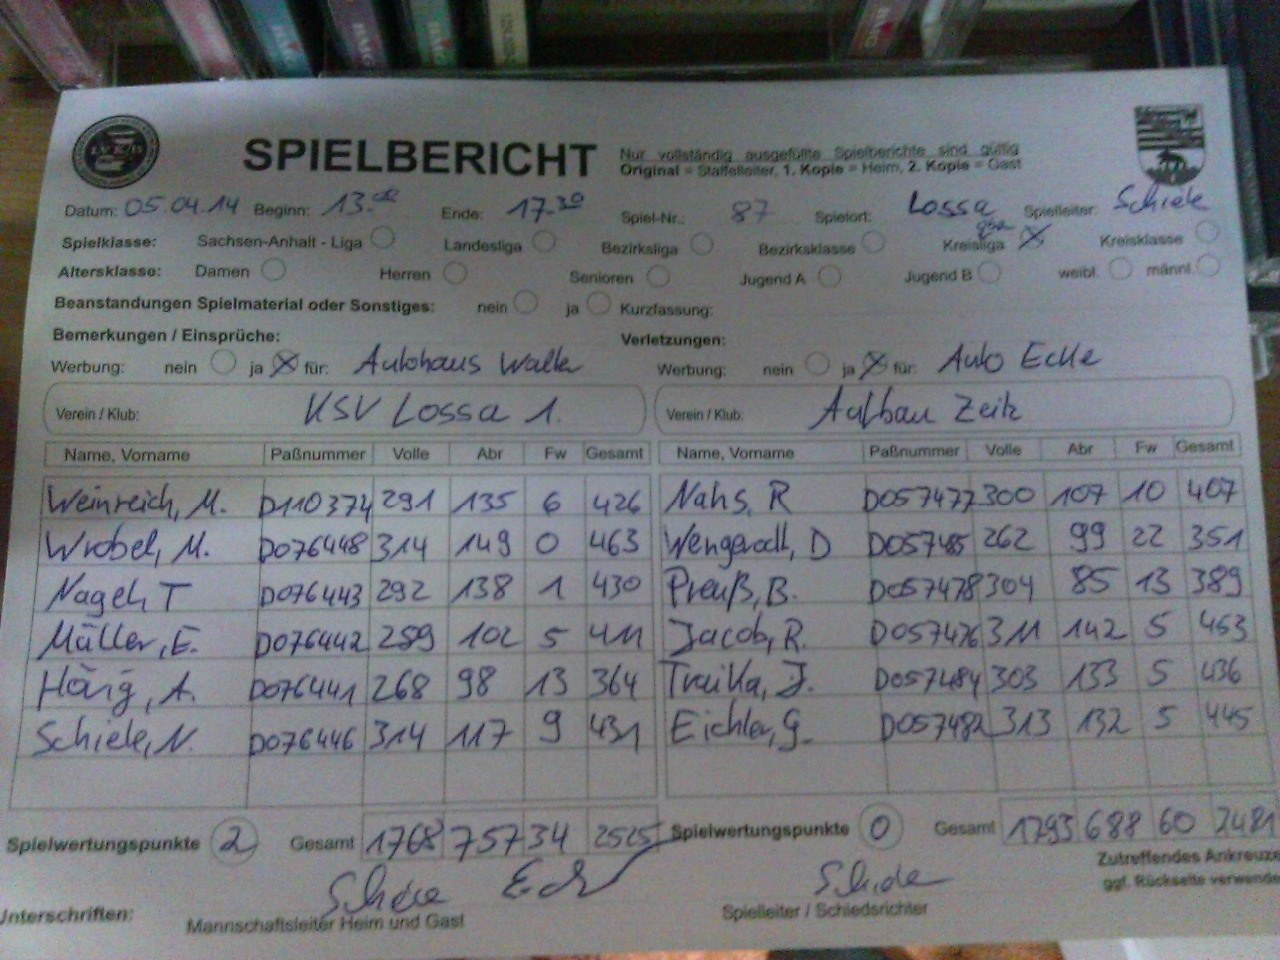 SPIELBERICHT
Nur vollständig ausgefüllte Spielberichte sind gültig
Original = Staffelleiter, 1. Kopie = Heim, 2. Kopie = Gast
Datum: 05.04.14 Beginn: 13.00 Ende: 17.30 Spiel-Nr.: 87 Spielort: Lossa Spielleiter: Schiele
Spielklasse: Sachsen-Anhalt - Liga Landesliga Bezirksliga Bezirksklasse Kreisliga Kreisklasse
Altersklasse: Damen Herren Senioren Jugend A Jugend B weibl. männl.
Beanstandungen Spielmaterial oder Sonstiges: nein ja Kurzfassung:
Bemerkungen / Einsprüche: Verletzungen:
Werbung: nein ja X für: Autohaus Walter Werbung: nein ja X für: Auto Ecke
Verein / Klub: KSV Lossa 1. Verein / Klub: Aufbau Zeitz
Name, Vorname Paßnummer Volle Abr Fw Gesamt Name, Vorname Paßnummer Volle Abr Fw Gesamt
Weinreich, M. D110374 291 135 6 426 Nahs, R D057477 300 107 10 407
Wrobel, M. D076448 314 149 0 463 D D057485 262 99 22 351
Nagel, T D076443 292 138 1 430 Preuß, B. D057478 304 85 13 389
Müller, E. D076442 289 102 5 411 Jacob, R. D057476 311 142 5 453
A. D076441 268 98 13 364 J. D057484 303 133 5 436
Schiele, N. D076446 314 117 9 431 Eichler, G. D057482 313 132 5 445
Spielwertungspunkte 2 Gesamt 1768 757 34 2525 Spielwertungspunkte 0 Gesamt 1793 688 60 2481
Zutreffendes Ankreuze
ggf. Rückseite verwende
Schiele Schiele
Unterschriften: Mannschaftsleiter Heim und Gast Spielleiter / Schiedsrichter